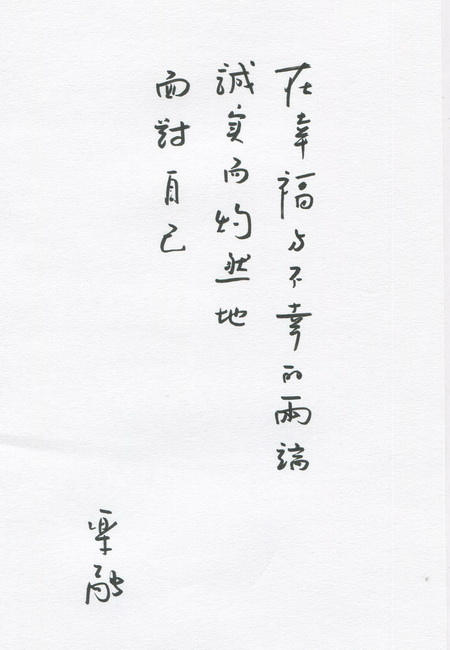 在幸福与不幸的兩端
誠實而灼然地
面對自己
栗融